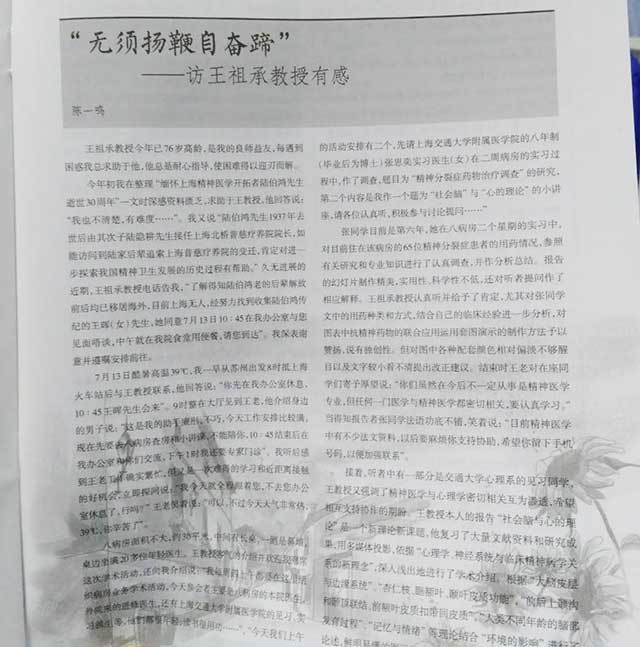 “无须扬鞭自奋蹄”
——访王祖承教授有感
陈一鸣
王祖承教授今年已76岁高龄，是我的良师益友，每遇到
困惑我总求助于他，他总是耐心指导，使困难得以迎刃而解。
今年初我在整理“缅怀上海精神医学开拓者陆伯鸿先生
逝世30周年”一文时深感资料匮乏，求助于王教授，他回答说：
“我也不清楚，有难度……”。我又说“陆伯鸿先生1937年去
世后由其次子陆隐耕先生接任上海北桥普慈疗养院院长，如
能访问到陆家后辈追索上海普慈疗养院的变迁，肯定对进一
步探索我国精神卫生发展的历史过程有帮助。”久无进展的
近期，王祖承教授电话告我，“了解得知陆伯鸿老的后辈解放
前后均已移居海外，目前上海无人，经努力找到收集陆伯鸿传
纪的王晖（女）先生，她同意7月13日10：45在我办公室与您
见面唔谈，中午就在我院食堂用便餐，请您到达”。我深表谢
意并遵嘱安排前往。
7月13日酷暑高温39℃，我一早从苏州出发8时抵上海
火车站后与王教授联系，他回答说：“你先在我办公室休息，
10：45王晖先生会来”。9时整在大厅见到王老，他介绍身边
的男子说：“这是我的助手 ，不巧，今天工作安排比较满，
现在先要去八病房查房和小讲课，不能陪你，10：45结束后在
我办公室和你们交流，下午1时我还要专家门诊”。我听后感
到王老工作确实繁忙，但又是一次难得的学习和近距离接触
的好机会，立即探问说：“我今天就全程跟着您，不去您办公
室休息了，行吗？”王老笑着说：“可以，不过今天天气非常热，
39℃，你辛苦了”。
八病房面积不大，约30平米，中间有长桌，一圈是 
桌边坐满20多位年轻医生。王教授客气的介绍并欢迎我 
这次学术活动，还向我介绍说：“我每周四上午都要在这里组
织病房业务学术活动，今天参会者主要是八病房的本院医生，
外院来的进修医生，还有上海交通大学附属医学院的见习、实
习医生等，他们都蛮年轻，读书蛮用功……”，“今天我们上午
的活动安排有二个，先请上海交通大学附属医学院的八年制
（毕业后为博士）张思奕实习医生（女）在二周病房的实习过
程中，作了调查，题目为“精神分裂症药物治疗调查”的研究，
第二个内容是我作一个题为“社会脑”与“心的理论”的小讲
座，请各位认真听，积极参与讨论提问……”
张同学目前是第六年，她在八病房二个星期的实习中，
对目前住在该病房的65位精神分裂症患者的用药情况，参照
有关研究和专业知识进行了认真调查，并作分析总结。报告
的幻灯片制作精美，实用性、科学性不低，还对听者提问作了
相应解释。王祖承教授认真听并给予了肯定，尤其对张同学
文中的用药种类和方式，结合自己的临床经验进一步分析，对
图表中抗精神药物的联合应用运用套图演示的制作方法予以
赞扬，说有独创性。但对图中各种配套颜色相对偏淡不够醒
目以及文字较小看不清提出改正建议。结束时王老对在座同
学们寄予厚望说：“你们虽然在今后不一定从事是精神医学
专业，但任何一门医学与精神医学都密切相关，要认真学习。”
当得知报告者张同学法语功底不错，笑着说：“目前精神医学
中有不少法文资料，以后要麻烦你支持协助，希望你留下手机
号码，以便加强联系”。
接着，听者中有一部分是交通大学心理系的见习同学，
王教授又强调了精神医学与心理学密切相关互为渗透，希望
相互支持协作的期盼。王教授本人的报告“社会脑与心的理
论”是一个新理论新课题，他复习了大量文献资料和研究成
果，用多媒体投影，依据“心理学、神经系统与临床精神病学关
系的新理念”，深入浅出地进行了学术介绍。根据“大脑皮层
与边缘系统”、“杏仁核、眶额叶、颞叶皮质功能”、“前后上颞沟
和颞顶联结、前额叶皮质扣带回皮质”、“人类不同年龄的脑部
发育过程”、“记忆与情绪”等理论结合“环境的影响”进行了